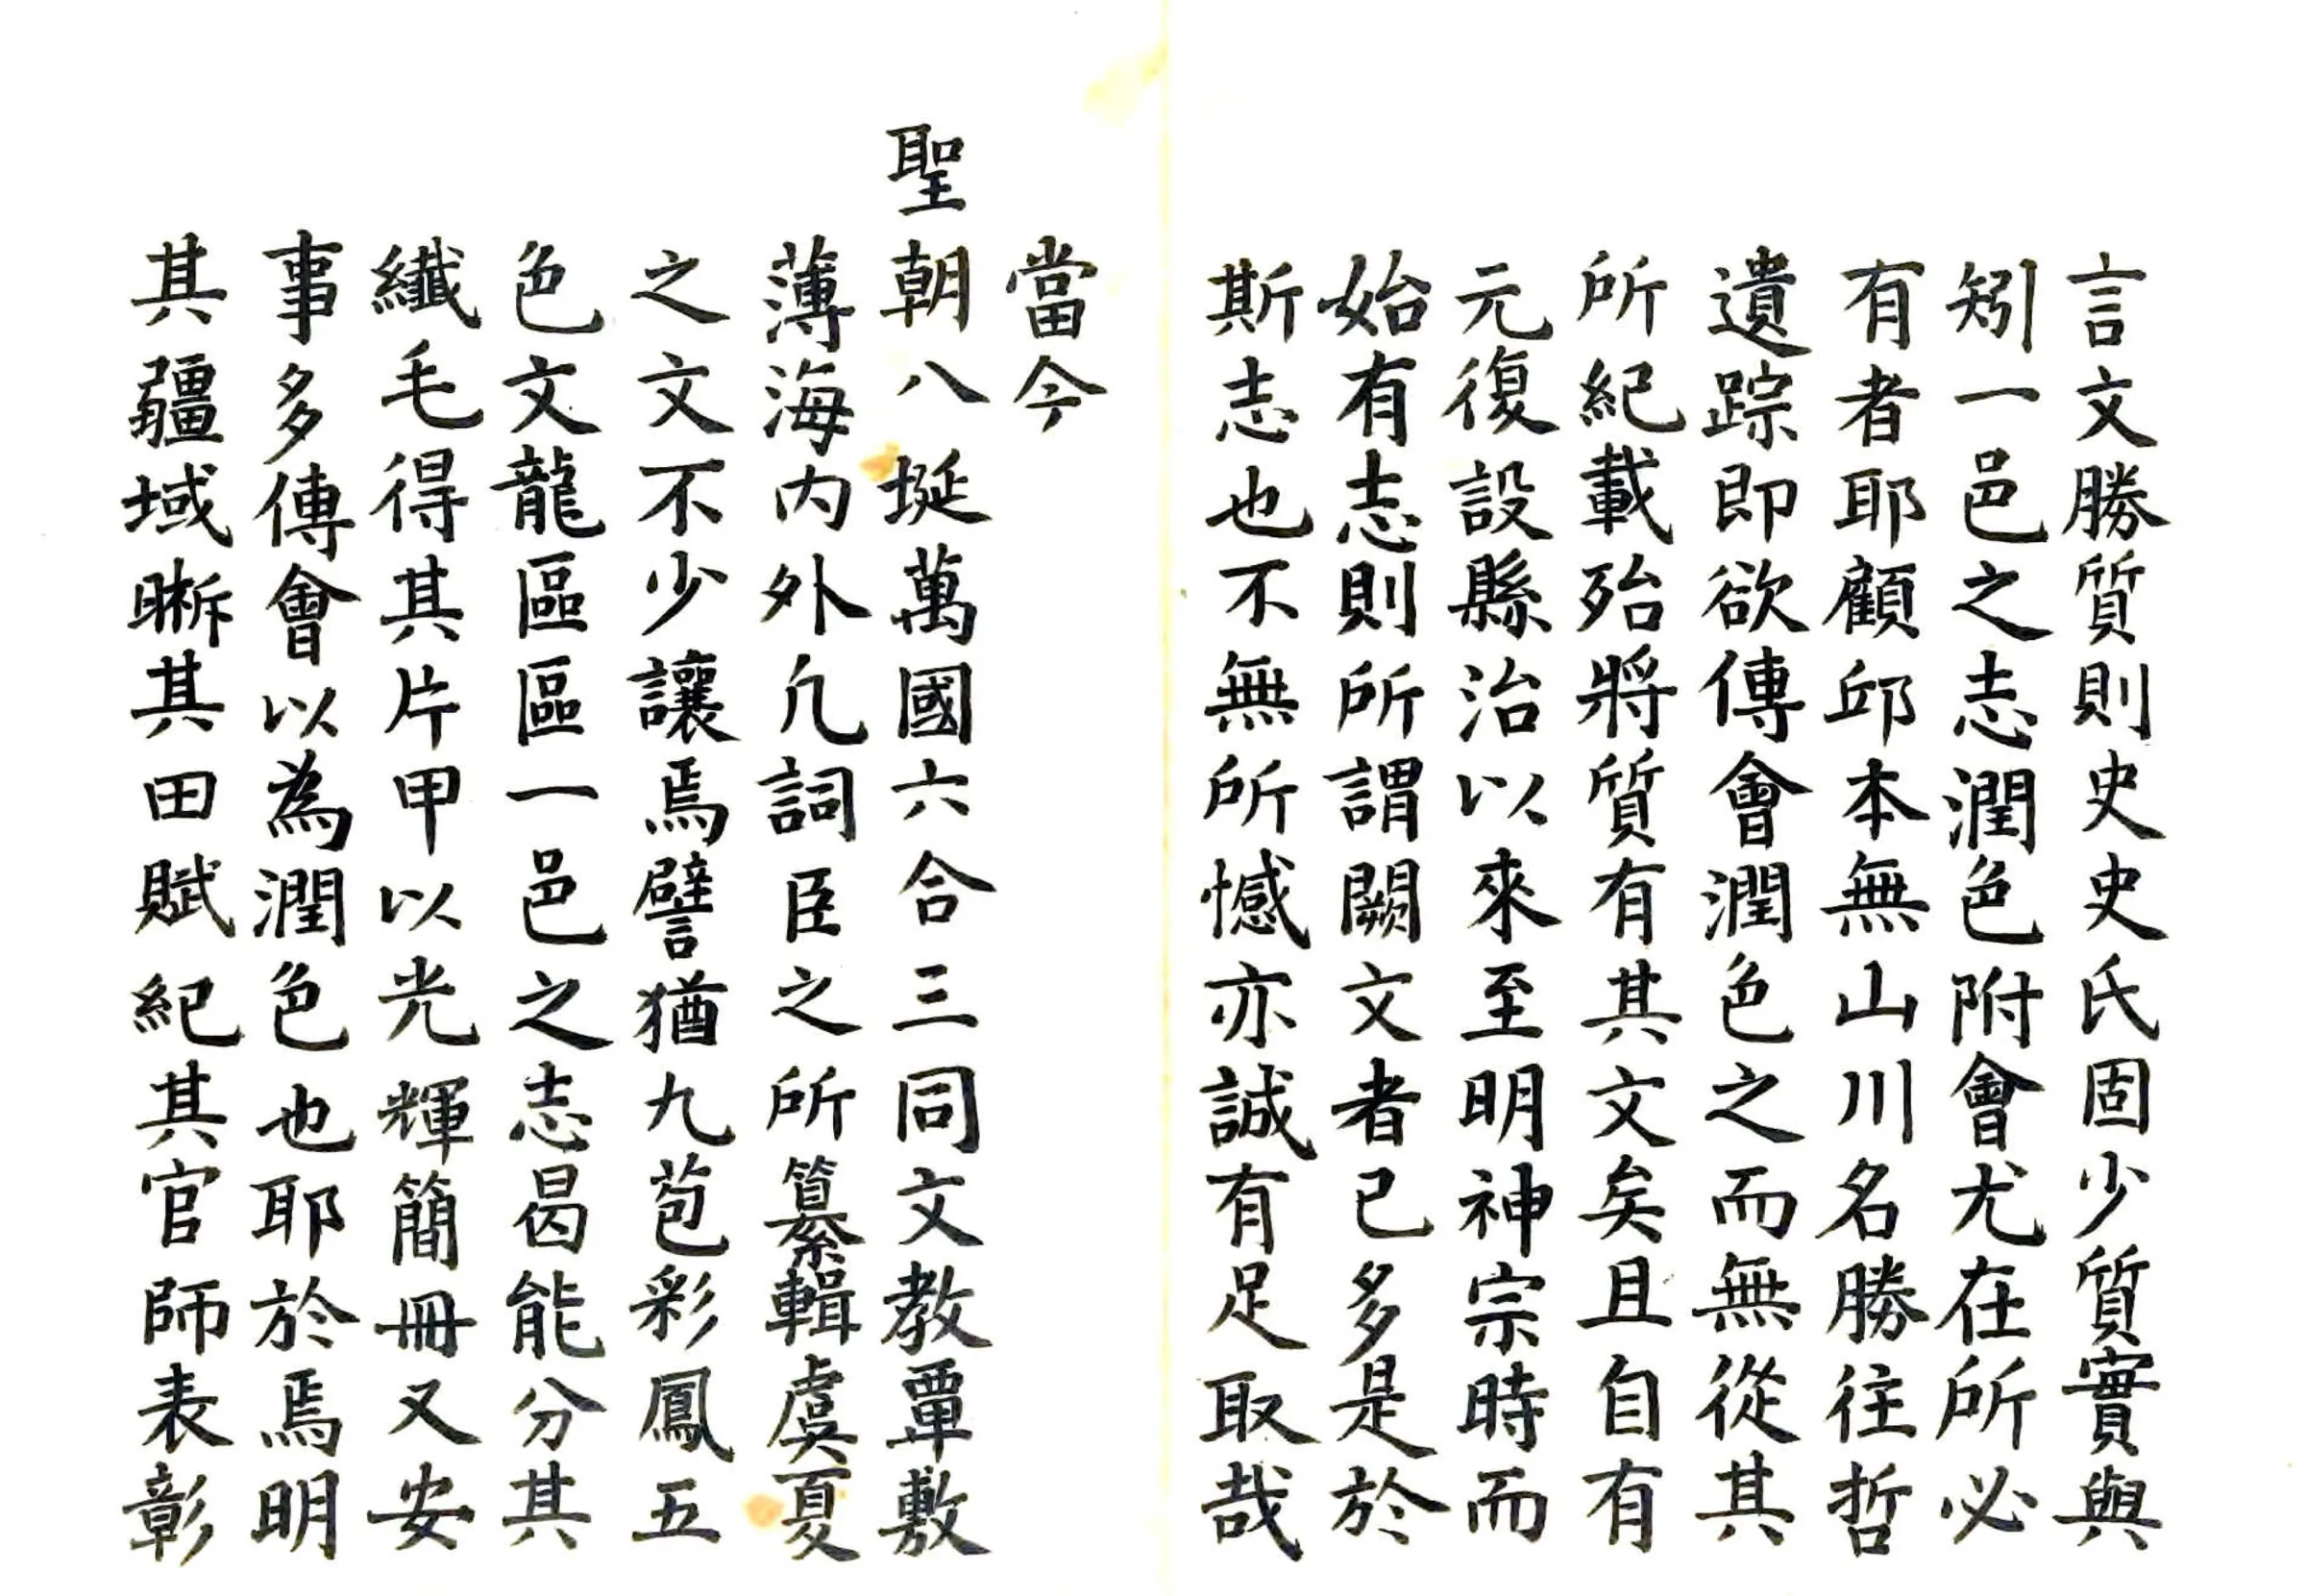 言文勝質則史史氏固少質實與
矧一邑之志潤色附會尤在所必
有者耶顧邱本無山川名勝往哲
遺踪即欲傳會潤色之而無從其
所紀載殆將質有其文矣且自有
元復設縣治以來至明神宗時而
始有志則所謂闕文者已多是於
斯志也不無所憾亦誠有足取哉
當今
聖朝八埏萬國六合三同文教覃敷
薄海内外凢詞臣之所纂輯虞夏
之文不少讓焉譬猶九苞彩鳳五
色文龍區區一邑之志曷能分其
纖毛得其片甲以光輝簡冊又安
事多傳會以為潤色也耶於焉明
其疆域晣其田賦紀其官師表彰